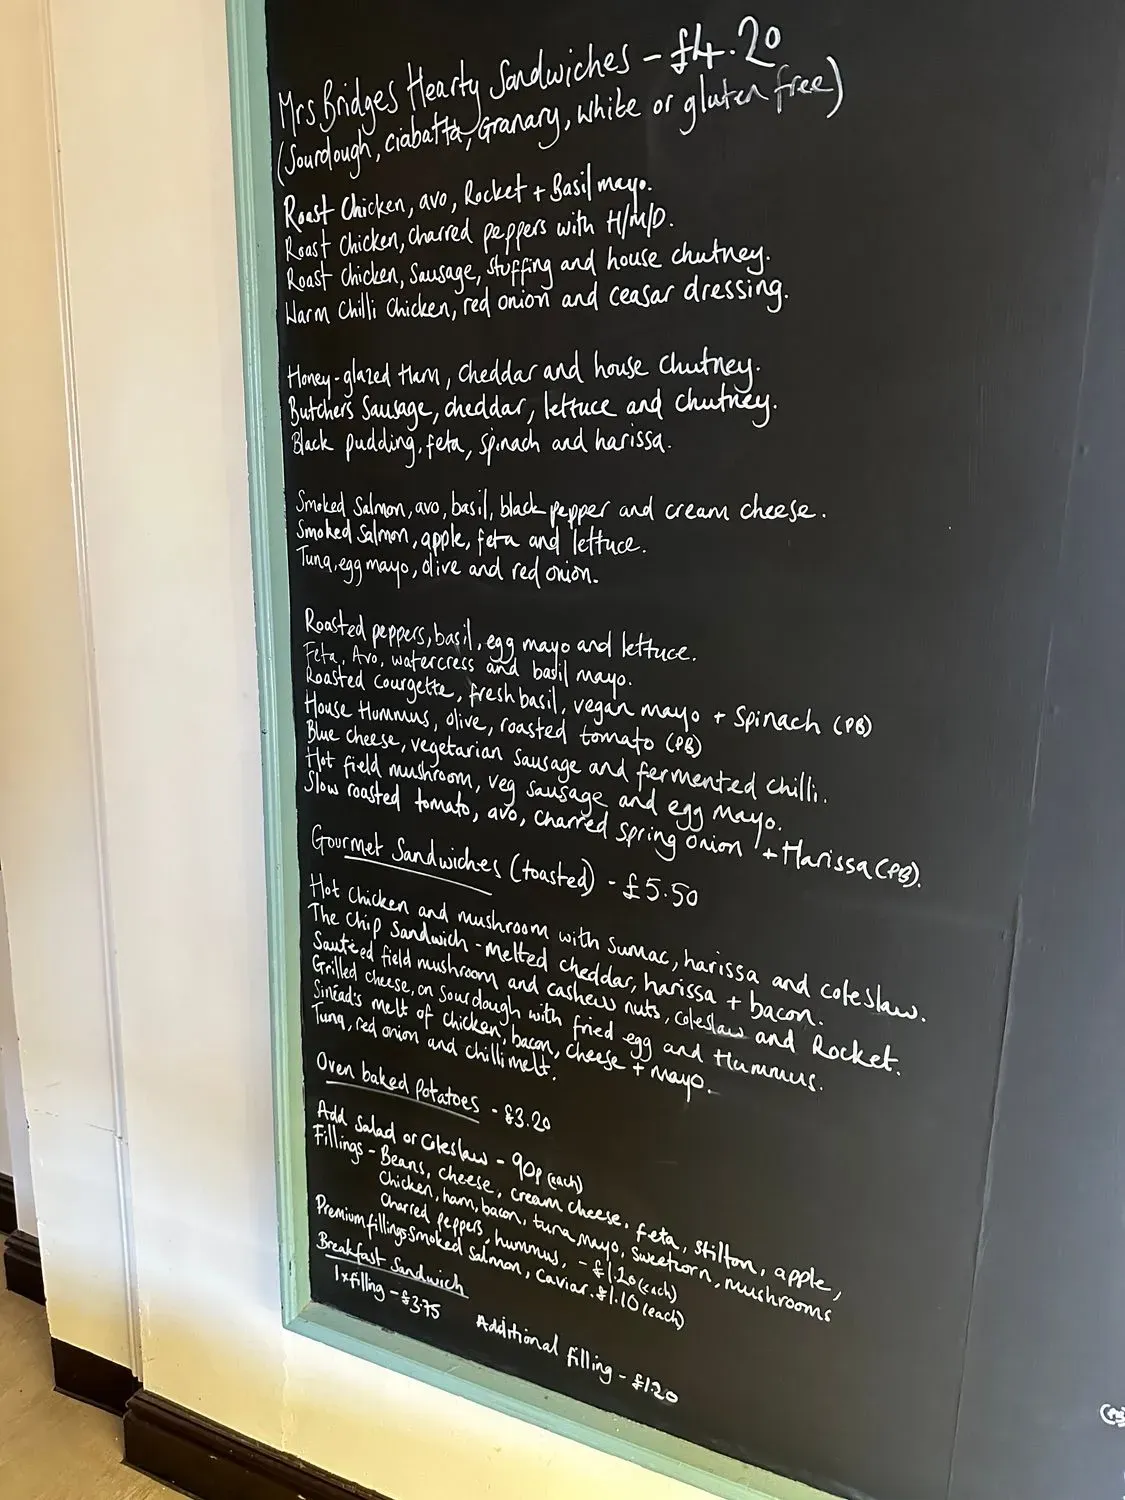 Mrs Bridges Hearty Sandwiches - £4.20
(Sourdough, ciabatta, Granary, white or gluten free)
Roast Chicken, avo, Rocket + Basil mayo.
Roast Chicken, charred peppers with H/M/D.
Roast Chicken, Sausage, stuffing and house chutney.
Warm Chilli Chicken, red onion and ceasar dressing.
Honey-glazed Ham, cheddar and house chutney.
Butchers Sausage, cheddar, lettuce and chutney.
Black pudding, feta, spinach and harissa.
Smoked Salmon, avo, basil, black pepper and cream cheese.
Smoked Salmon, apple, feta and lettuce.
Tuna, egg mayo, olive and red onion.
Roasted peppers, basil, egg mayo and lettuce.
Feta, Avo, watercress and basil mayo.
Roasted Courgette, fresh basil, vegan mayo + Spinach (PB)
House Hummus, olive, roasted tomato (PB)
Blue cheese, vegetarian sausage and fermented chilli.
Hot field mushroom, veg sausage and egg Mayo.
Slow roasted tomato, avo, charred spring onion + Harissa (PB).
Gourmet Sandwiches (toasted) - £5.50
Hot Chicken and mushroom with Sumac, harissa and coleslaw.
The Chip Sandwich - Melted cheddar, harissa + bacon.
Sautéed field mushroom and cashew nuts, coleslaw and Rocket.
Grilled cheese, on Sourdough with fried egg and Hummus.
Sinead's melt of chicken, bacon, cheese + Mayo.
Tuna, red onion and chilli melt.
Oven baked Potatoes - £3.20
Add Salad or Coleslaw - 90p (each)
Fillings - Beans, cheese, cream cheese, feta, stilton, apple,
Chicken, ham, bacon, tuna mayo, sweetcorn, mushrooms
Charred peppers, hummus, - £1.20 (each)
Premium fillings Smoked Salmon, Caviar. £1.10 (each)
Breakfast Sandwich
1x filling - £3.75 Additional filling - £1.20